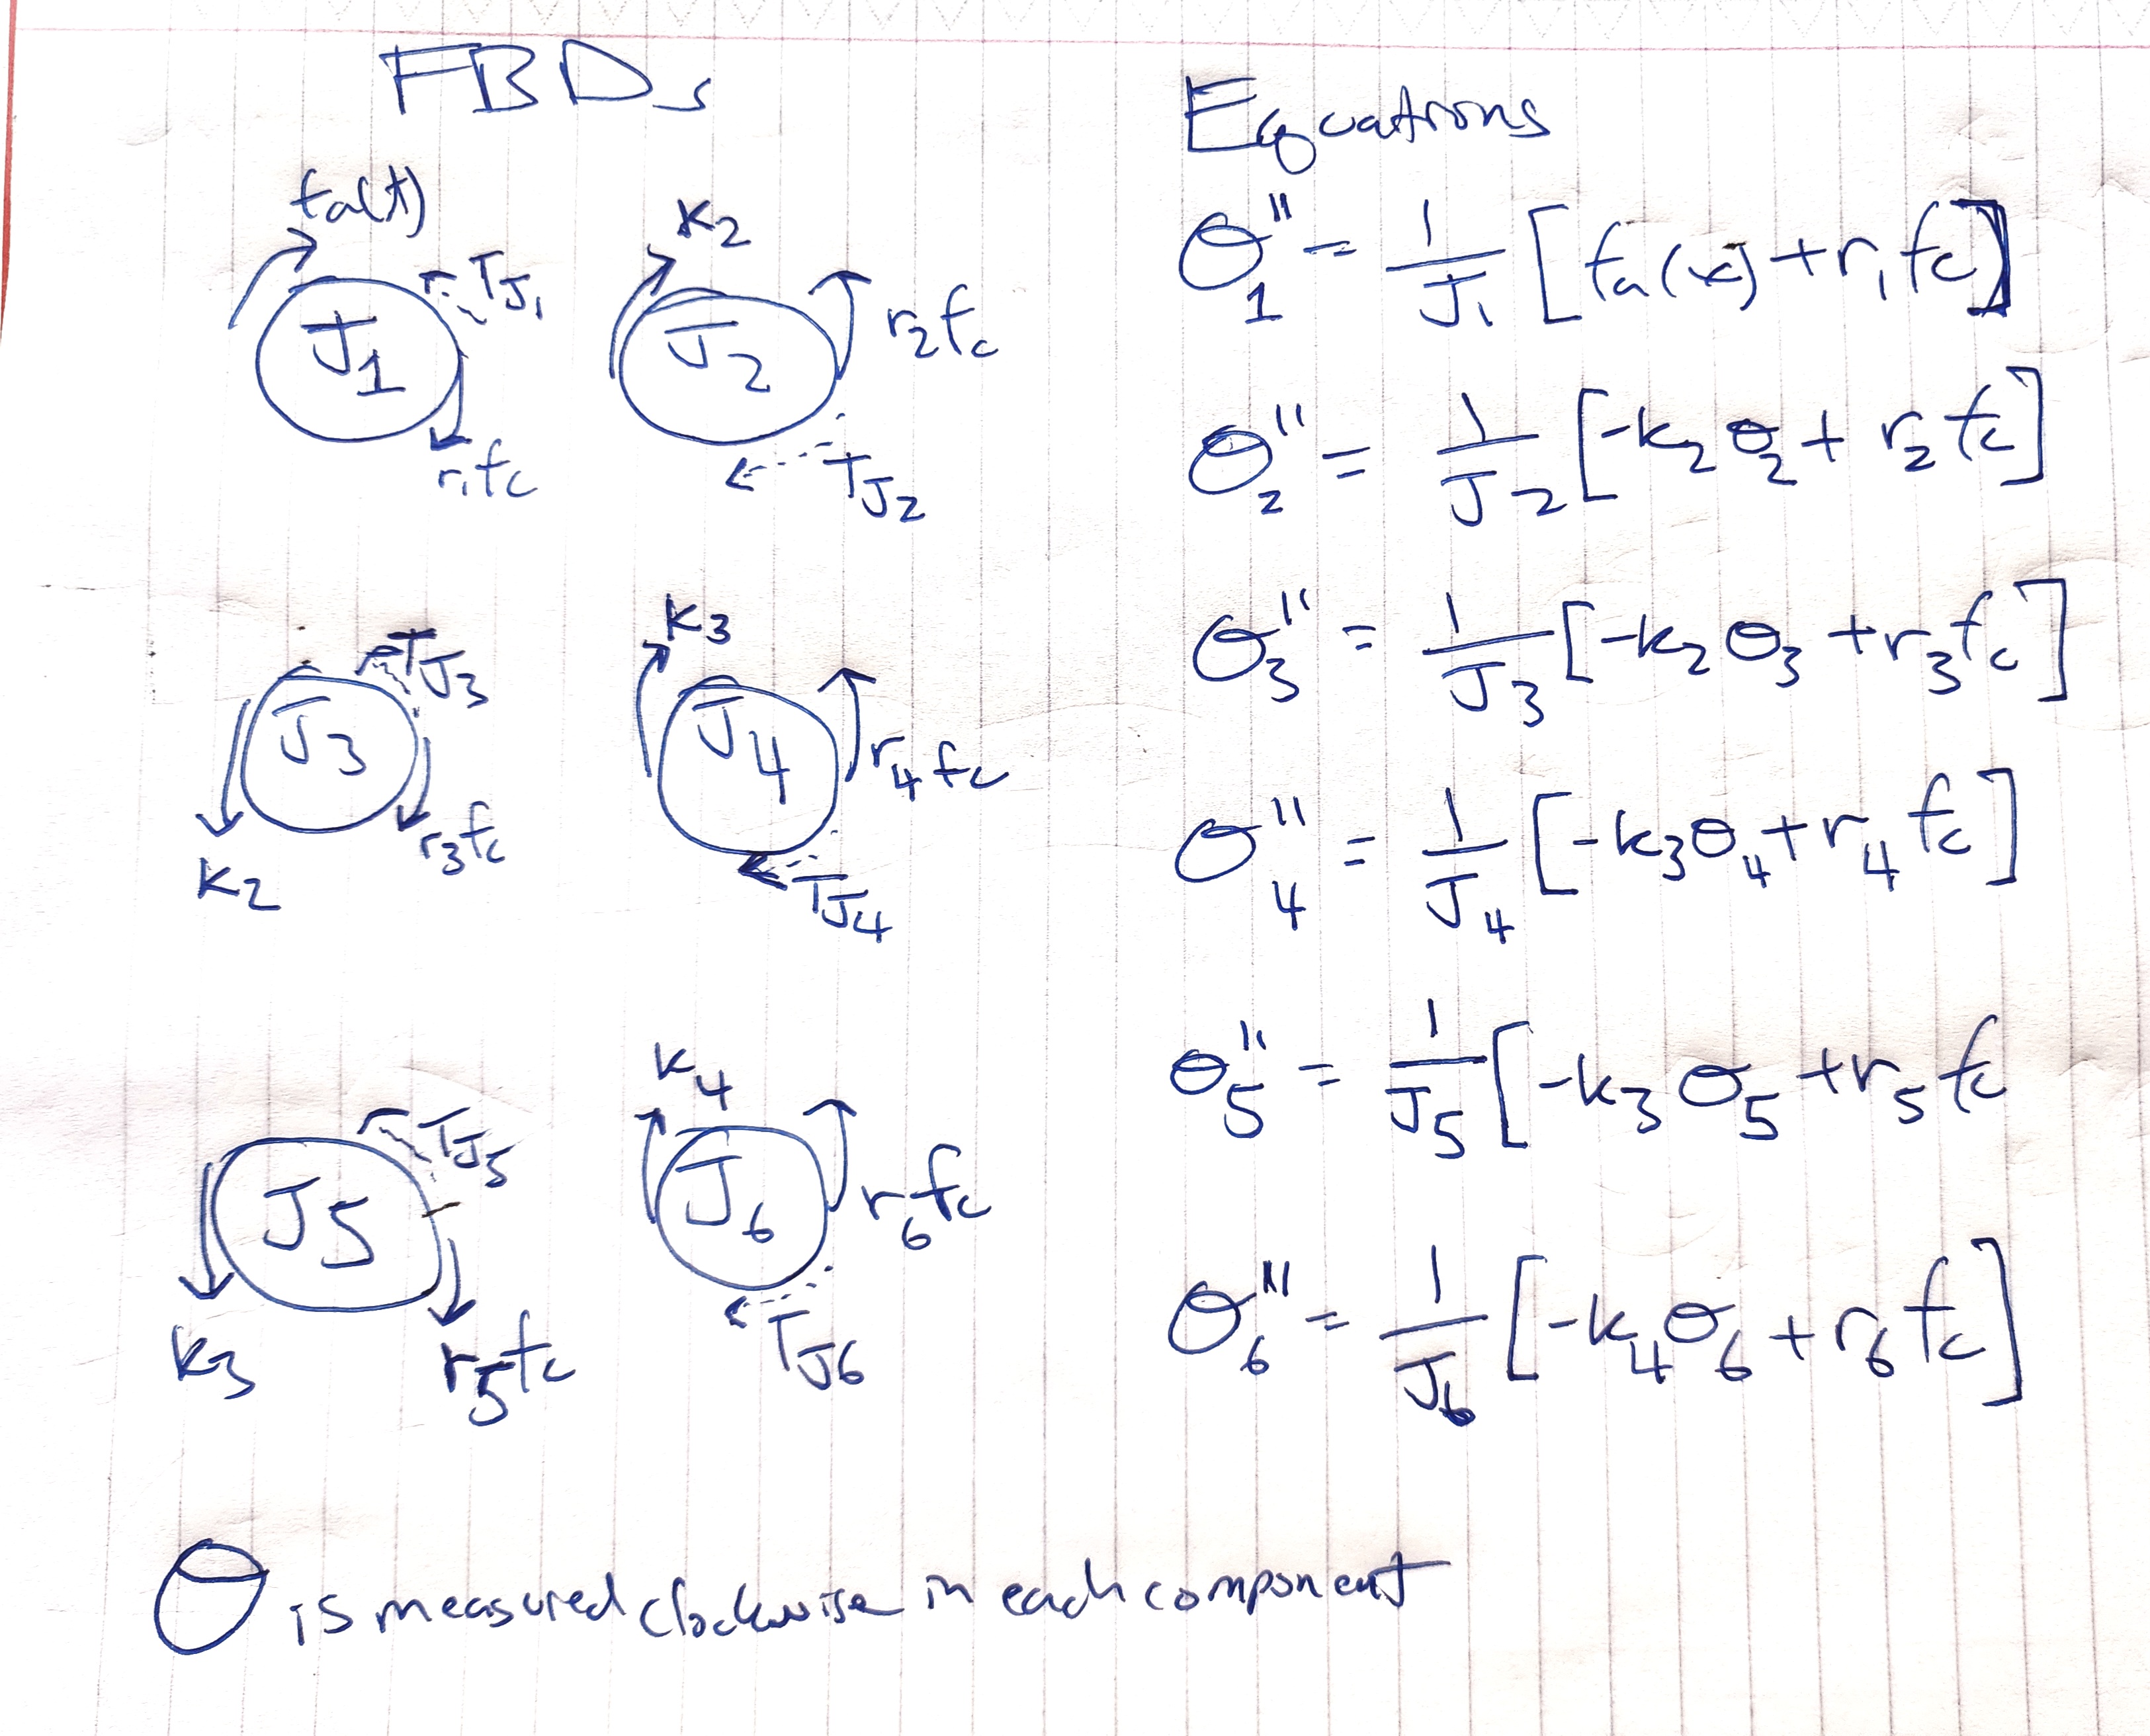 FBDs
fa(t)
TJ1
J1
r1fc
K2
J2
r2fc
TJ2
TJ3
J3
r3fc
K2
K3
J4
r4fc
TJ4
TJ5
J5
K3
r5fc
K4
J6
r6fc
TJ6
Equations
θ1'' = 1/J1 [fa(t) + r1fc]
θ2'' = 1/J2 [-k2θ2 + r2fc]
θ3'' = 1/J3 [-k2θ3 + r3fc]
θ4'' = 1/J4 [-k3θ4 + r4fc]
θ5'' = 1/J5 [-k3θ5 + r5fc
θ6''' = 1/J6 [-k4θ6 + r6fc]
θ is measured clockwise in each component